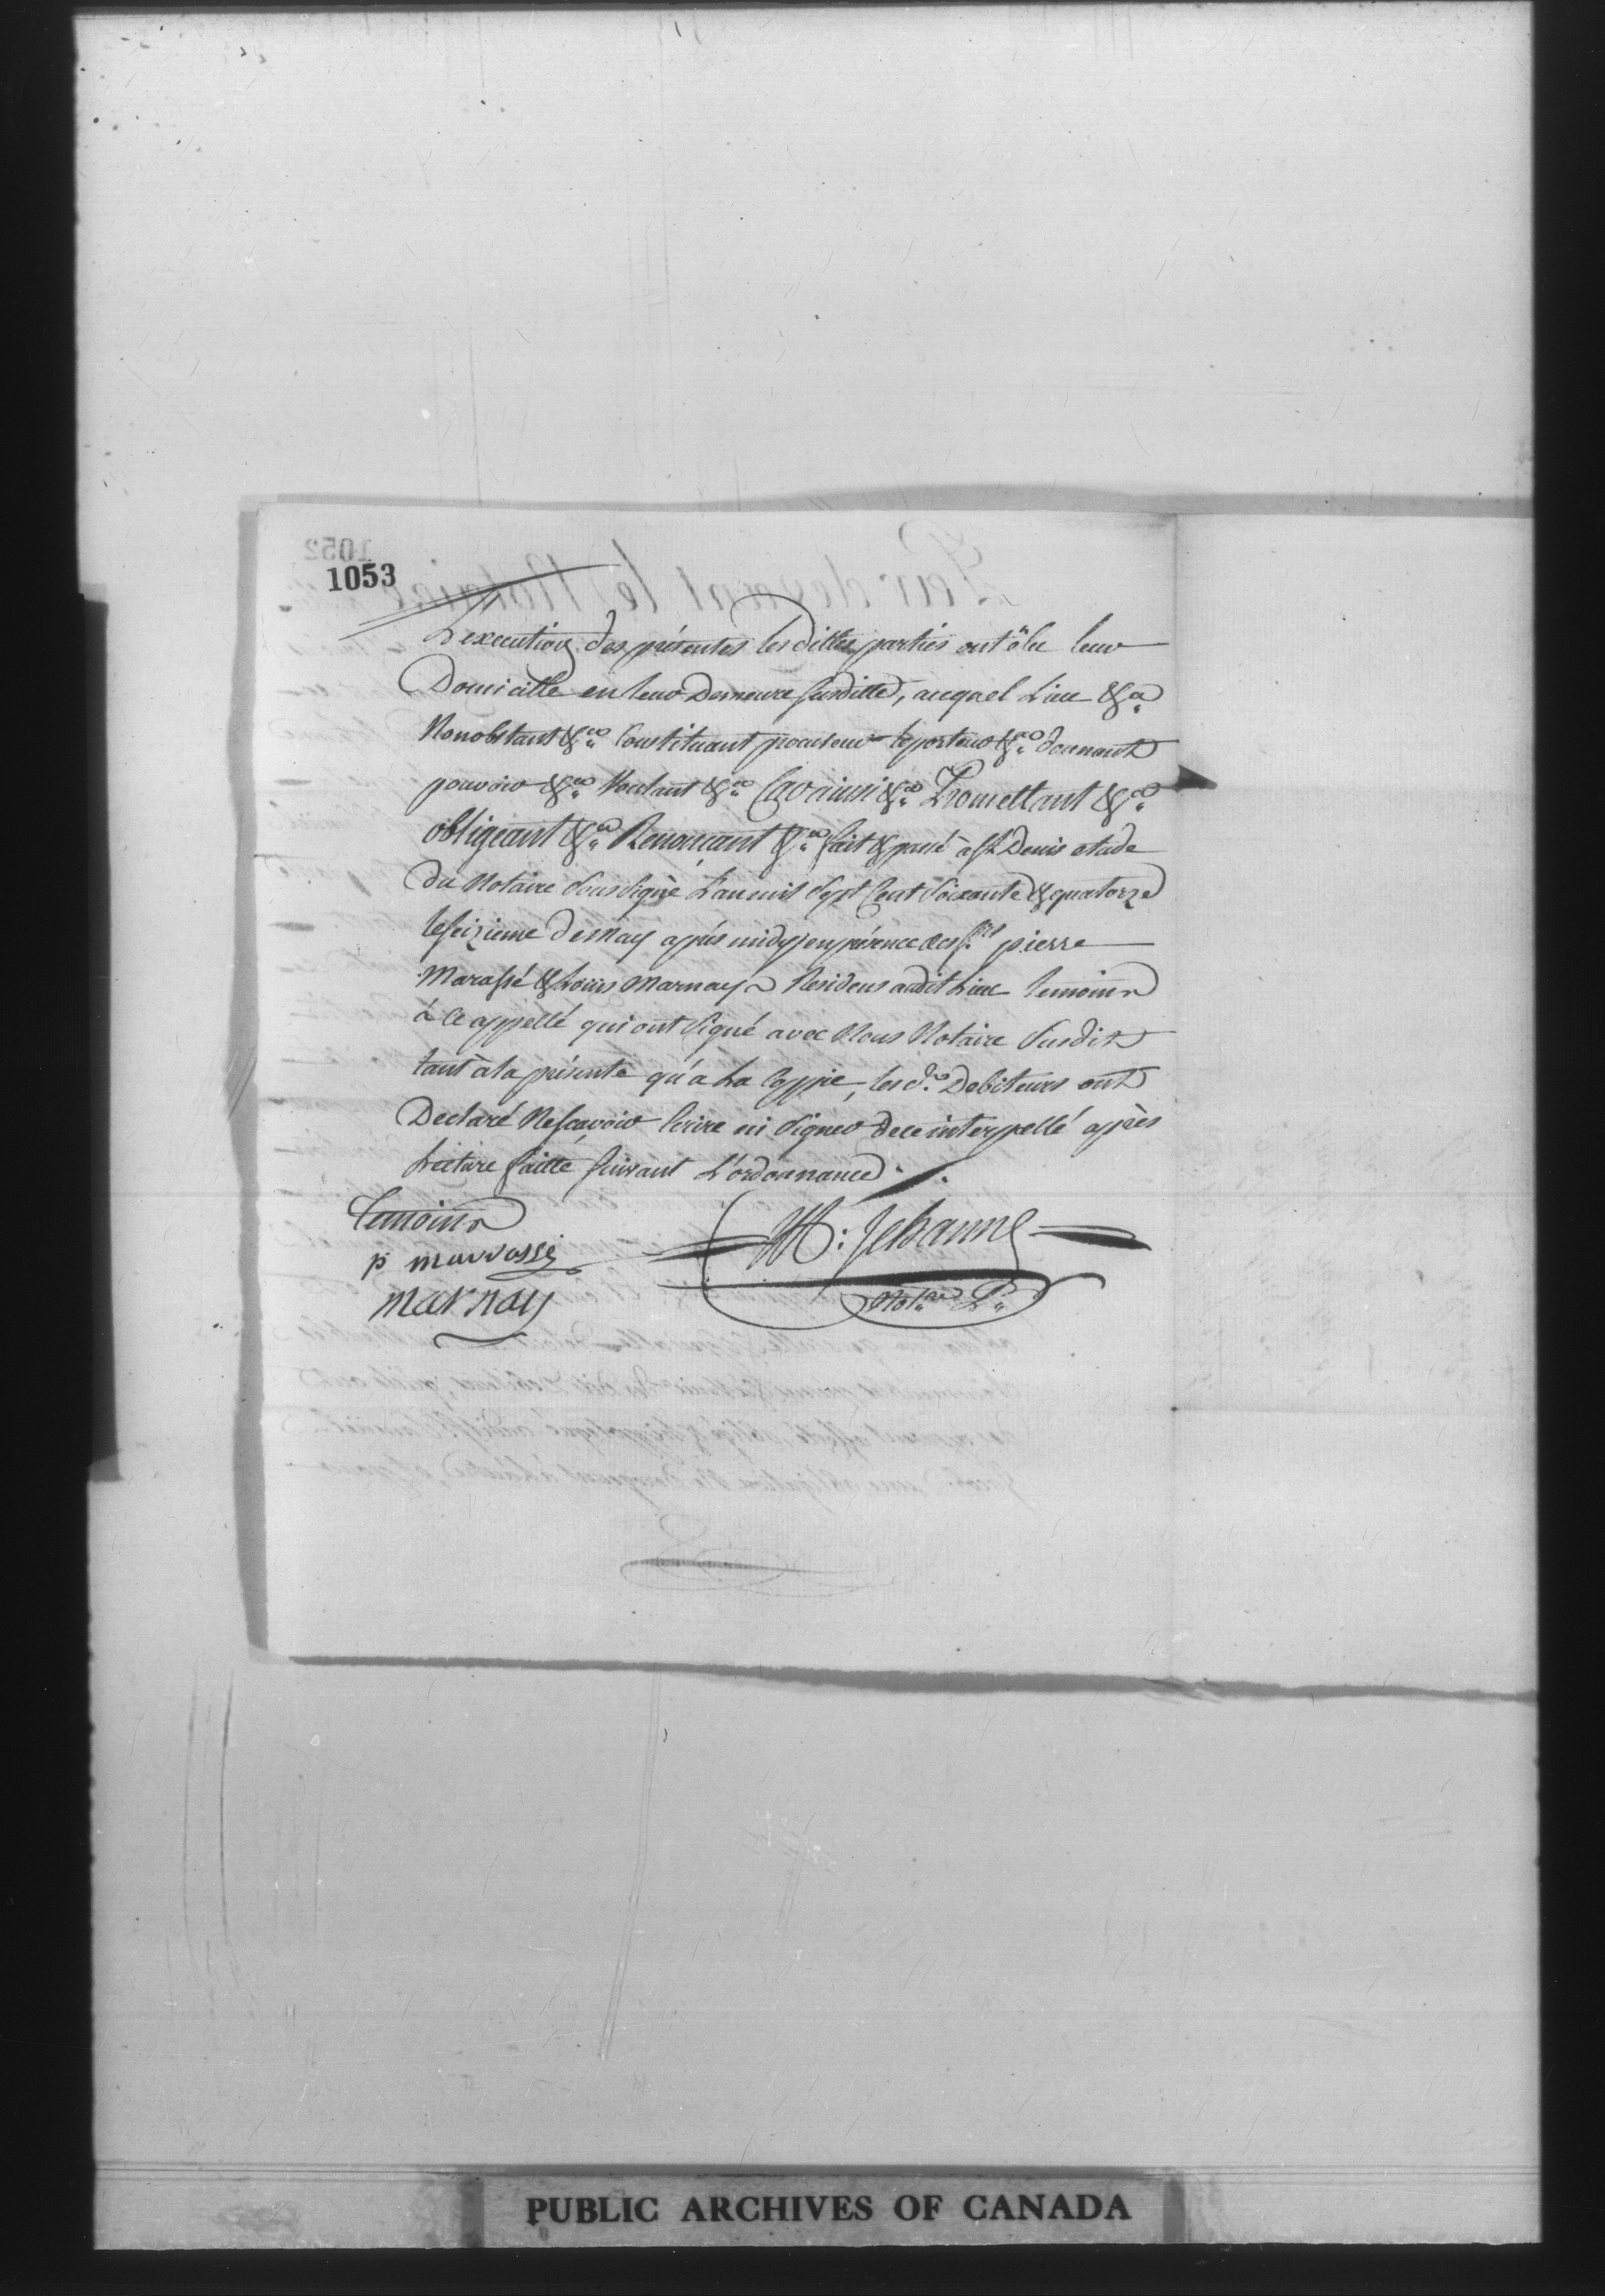 1053
L'execution des présentes les dittes parties ont élu leur
Domicille en leur Demeure susditte, auquel Lieu &a
Nonobstant &a Constituant procureur le porteur &a donnant
pouvoir &a Voulant &a Car ainsi &a Promettant &a
obligeant &a Renonçant &a fait & passé à St Denis etude
du Notaire Soussigné L'an mil Sept Cent Soixante & quatorze
le seizieme de May après midy en présence des Srs pierre
Marassé & Louis Marnay Residens audit Lieu temoins
à ce appellé qui ont Signé avec Nous Notaire Susdit
tant à la présente qu'a La Coppie, les d. Debiteurs ont
Declaré Ne scavoir Ecrire ni Signer de ce interpellé après
Lecture faitte suivant L'ordonnance.
temoins
p marrassé
marnay
M: Jehanne
Notre P.
PUBLIC ARCHIVES OF CANADA